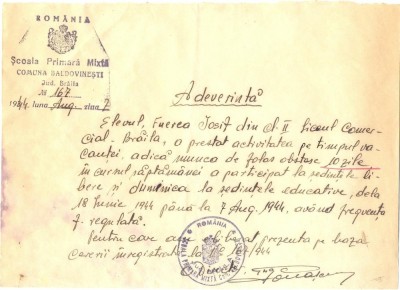 ROMÂNIA
Școala Primară Mixtă
COMUNA BALDOVINEȘTI
Jud. Brăila
№ 167
1944 luna Aug. ziua 7
Adeverință
Elevul, Enerea Iosif din cl. II Liceul Comer-
cial - Brăila, a prestat activitatea pe timpul va-
canței, adică munca de folos obștesc 10 zile
în cursul săptămânei a participat la ședințele li-
bere, și dumineca la ședințele educative, dela
18 Iunie 1944 până la 7 Aug. 1944, având frequența
regulată.
Pentru care am liberat prezenta pe baza
cererii înregistrată la № 167/944
Director
ROMÂNIA